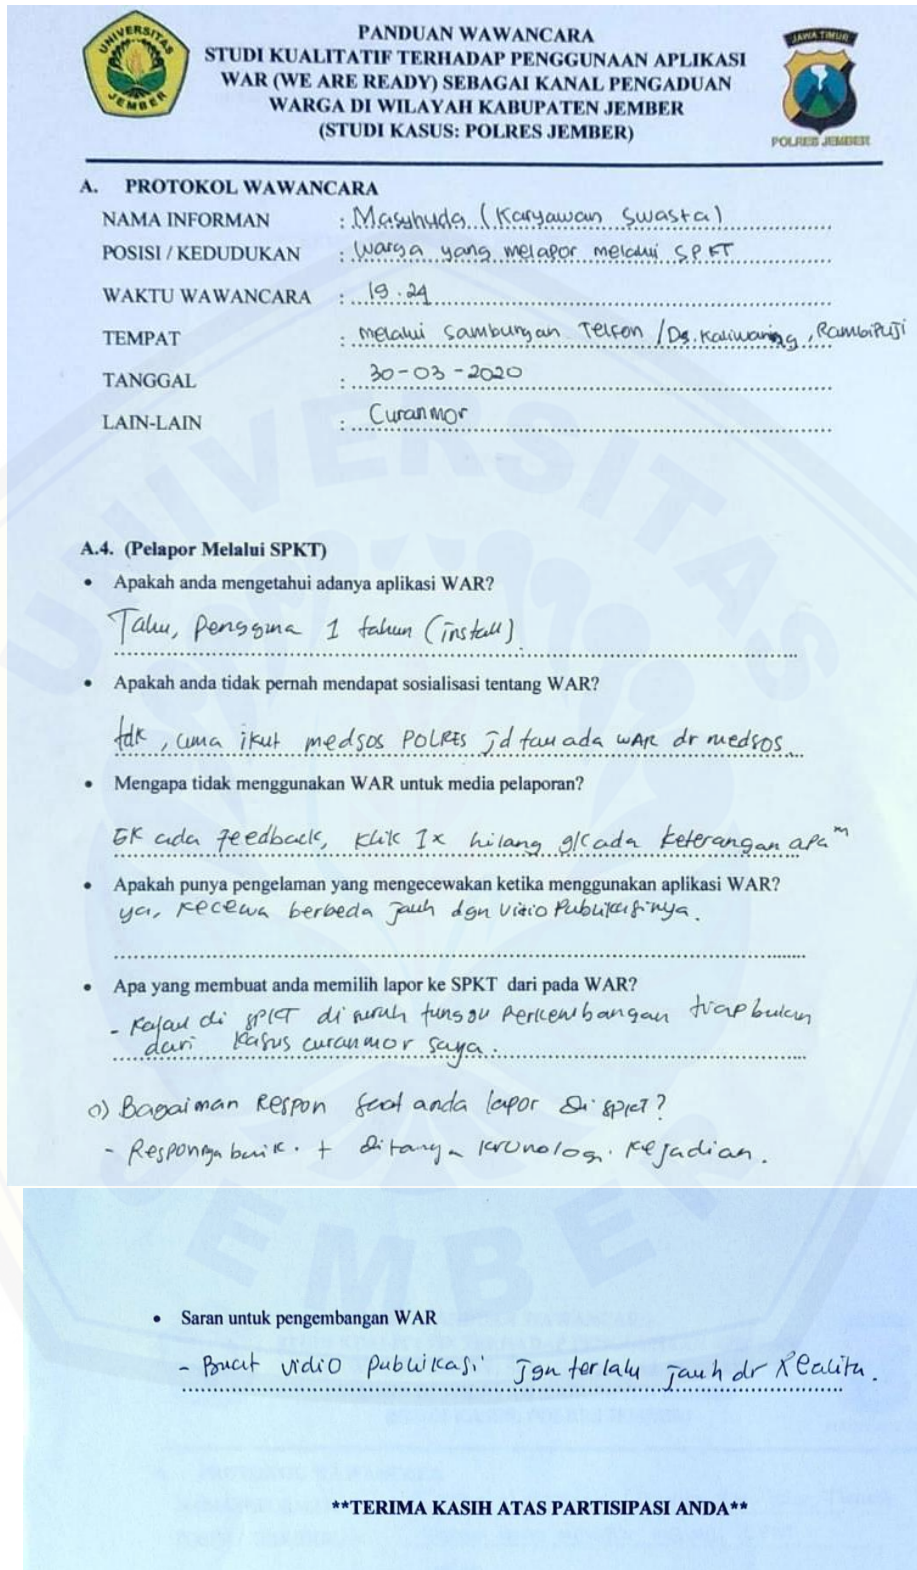 UNIVERSITAS
JEMBER
PANDUAN WAWANCARA
STUDI KUALITATIF TERHADAP PENGGUNAAN APLIKASI
WAR (WE ARE READY) SEBAGAI KANAL PENGADUAN
WARGA DI WILAYAH KABUPATEN JEMBER
(STUDI KASUS: POLRES JEMBER)
JAWA TIMUR
POLRES JEMBER
A. PROTOKOL WAWANCARA
NAMA INFORMAN : Masyhuda (Karyawan Swasta)
POSISI / KEDUDUKAN : Warga yang melapor melalui SPKT
WAKTU WAWANCARA : 19.24
TEMPAT : melalui Sambungan Telfon / Ds. Kaliwaning, Rambipuji
TANGGAL : 30-03-2020
LAIN-LAIN : Curanmor
A.4. (Pelapor Melalui SPKT)
• Apakah anda mengetahui adanya aplikasi WAR?
Tahu, pengguna 1 tahun (install)
• Apakah anda tidak pernah mendapat sosialisasi tentang WAR?
tdk, cuma ikut medsos POLRES jd tau ada WAR dr medsos
• Mengapa tidak menggunakan WAR untuk media pelaporan?
GK ada feedback, klik 1x hilang gk ada keterangan apa"
• Apakah punya pengelaman yang mengecewakan ketika menggunakan aplikasi WAR?
ya, kecewa berbeda jauh dgn vidio Publikasinya.
• Apa yang membuat anda memilih lapor ke SPKT dari pada WAR?
- Kalau di SPKT di suruh tunggu perkembangan tiap bulan
dari kasus curanmor saya.
o) Bagaiman Respon saat anda lapor di SPKT?
- Responnya baik. + ditanya kronologi kejadian.
• Saran untuk pengembangan WAR
- Buat vidio publikasi jgn terlalu jauh dr Realita.
**TERIMA KASIH ATAS PARTISIPASI ANDA**
UNIVERSITAS
JEMBER